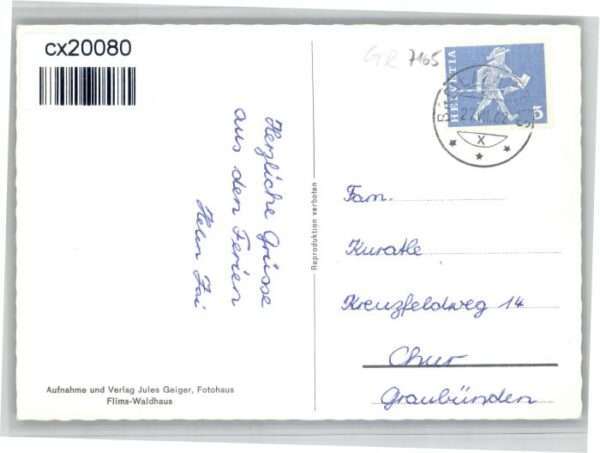 cx20080
GR 7165
HELVETIA
5
Herzliche Grüsse
aus den Ferien
Reproduktion verboten
Fam.
Kuratle
Kreuzfeldweg 14
Chur
Graubünden
Aufnahme und Verlag Jules Geiger, Fotohaus
Flims-Waldhaus